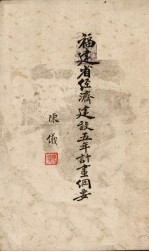 福建省經濟建設五年計畫綱要
陳儀